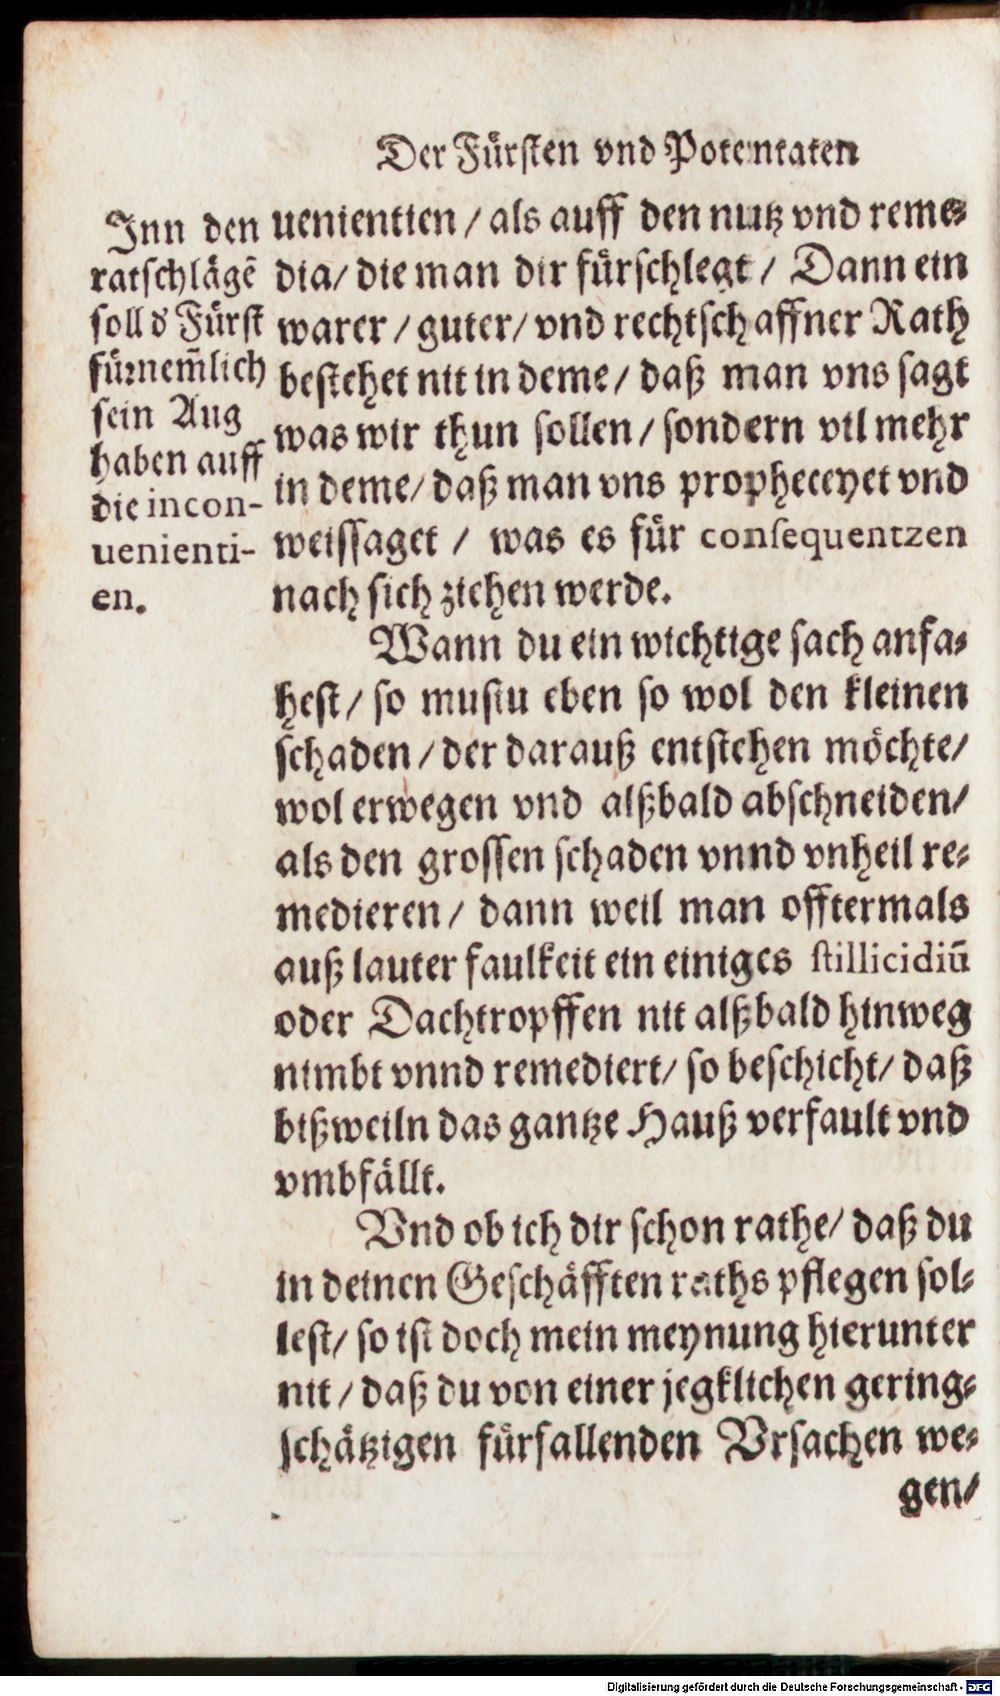 Der Fürsten vnd Potentaten
Inn den
ratschlägẽ
soll d' Fürst
fürnem̃lich
sein Aug
haben auff
die incon-
uenienti-
en.
uenientien / als auff den nutz vnd reme-
dia/ die man dir fürschlegt / Dann ein
warer / guter/ vnd rechtschaffner Rath
bestehet nit in deme / daß man vns sagt
was wir thun sollen / sondern vil mehr
in deme/ daß man vns propheceyet vnd
weissaget / was es für consequentzen
nach sich ziehen werde.
Wann du ein wichtige sach anfa-
hest / so mustu eben so wol den kleinen
schaden / der darauß entstehen möchte/
wol erwegen vnd alßbald abschneiden/
als den grossen schaden vnnd vnheil re-
medieren / dann weil man offtermals
auß lauter faulkeit ein einiges stillicidiũ
oder Dachtropffen nit alßbald hinweg
nimbt vnnd remediert/ so beschicht/ daß
bißweiln das gantze Hauß verfault vnd
vmbfällt.
Vnd ob ich dir schon rathe/ daß du
in deinen Geschäfften raths pflegen sol-
lest/ so ist doch mein meynung hierunter
nit / daß du von einer jegklichen gering-
schätzigen fürfallenden Vrsachen we-
gen/
Digitalisierung gefördert durch die Deutsche Forschungsgemeinschaft - DFG